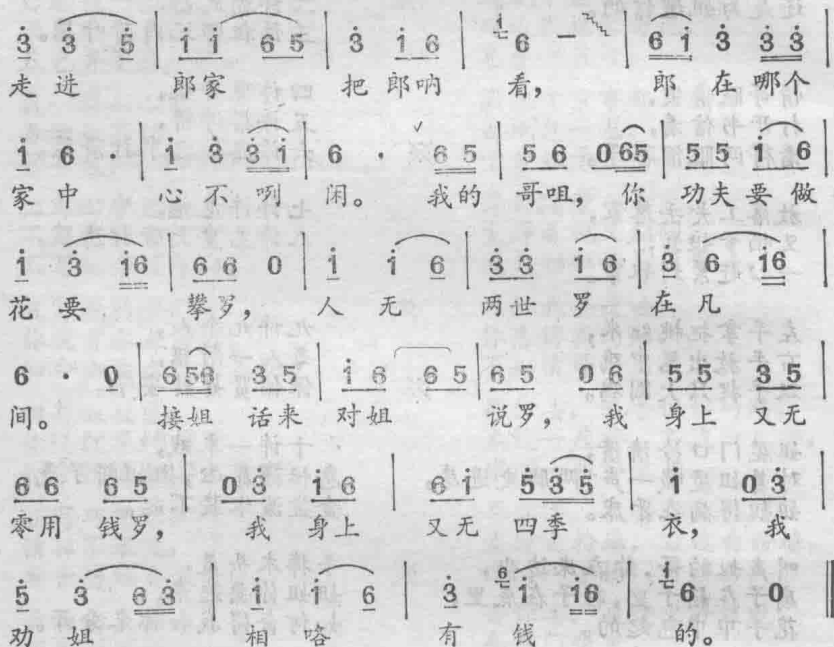 3 3 5 | 1 1 6 5 | 3 1 6 | 6 — | 6 1 3 3 3 |
走进 郎家 把郎呐 看， 郎在哪个
1 6 | 1 3 3 1 | 6 · 6 5 | 5 6 0 6 5 | 5 5 1 6 |
家中 心不咧 闲。 我的 哥咀，你 功夫要做
1 3 1 6 | 6 6 0 | 1 1 6 | 3 3 1 6 | 3 6 1 6 |
花要 攀罗， 人无 两世罗 在凡
6 · 0 | 6 5 6 3 5 | 1 6 6 5 | 6 5 0 6 | 5 5 3 5 |
间。 接姐话来 对姐 说罗，我 身上又无
6 6 6 5 | 0 3 1 6 | 6 1 5 3 5 | 1 0 3 |
零用钱罗， 我身上 又无四季 衣，我
5 3 6 3 | 1 1 6 | 3 6 1 1 6 | 1 6 0 ‖
劝姐 相咯 有钱 的。